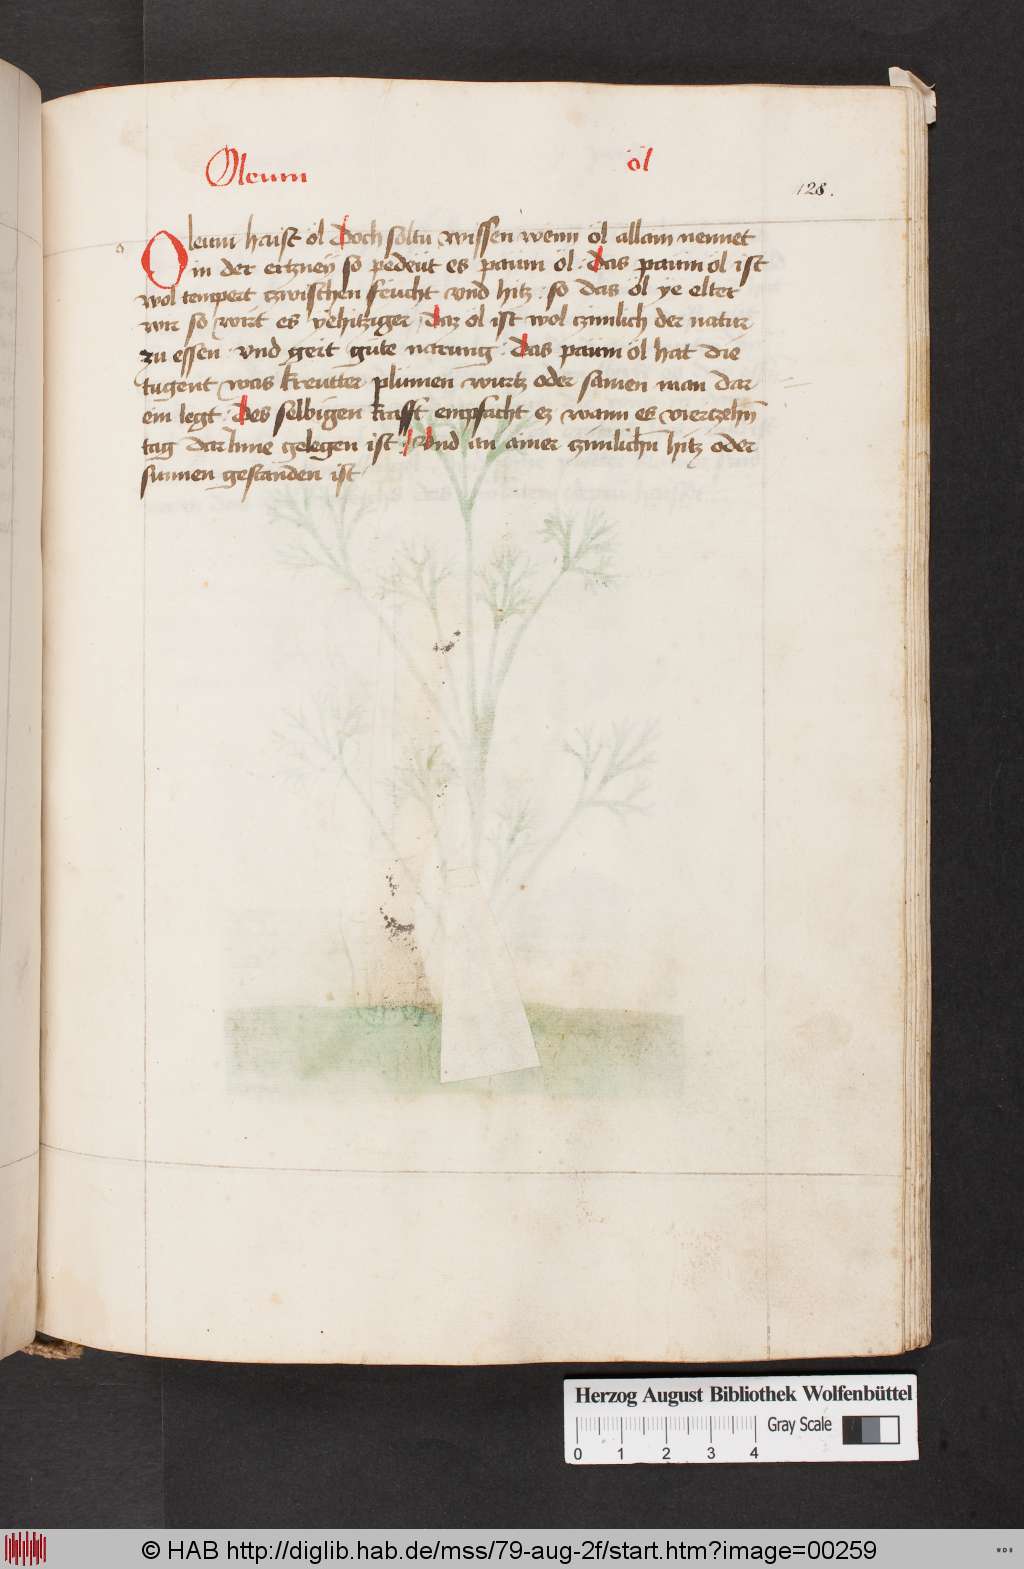 Oleum öl
128.
Oleum haist öl Doch soltu wissen wenn öl allain nennet
in der ertzney so pedeüt es paum öl . Das paum öl ist
wol tempert zwischen feucht vnd hitz . so das öl ye elter
wir so wirt es yehitziger . Daz öl ist wol czimlich der natur
zu essen . vnd geit gute narung . Das paum öl hat die
tugent was kreutter plümen wurtz oder samen man dar
ein legt . Des selbigen krafft empfacht ez wann es viertzehn
tag darInne gelegen ist . Vnd an ainer czimlichn hitz oder
sunnen gestanden ist
Herzog August Bibliothek Wolfenbüttel
Gray Scale
0 1 2 3 4
© HAB http://diglib.hab.de/mss/79-aug-2f/start.htm?image=00259